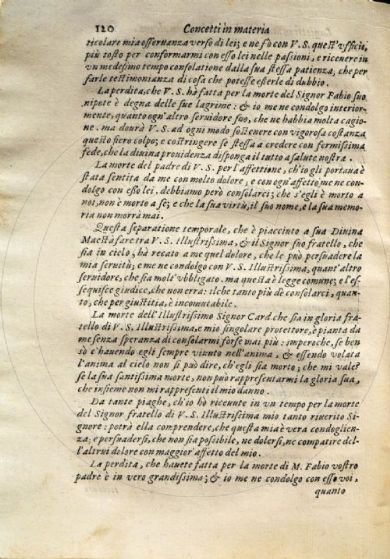 120 Concetti in materia
ticolare mia osseruanza verso di lei; e ne fò con V. S. quest'vfficio,
più tosto per conformarmi con esso lei nelle passioni, e riceuere in
vn medesimo tempo consolatione dalla sua stessa patienza, che per
farle testimonianza di cosa che potesse esserle di dubbio.
La perdita, che V. S. hà fatta per la morte del Signor Fabio suo
nipote è degna delle sue lagrime: & io me ne condolgo interior-
mente, quanto ogn'altro seruidore suo, che ne habbia molta cagio
ne. ma dourà V. S. ad ogni modo sostenere con vigorosa costanza
questo fiero colpo; e costringere se stessa a credere con fermissima
fede, che la diuina prouidenza disponga il tutto a salute nostra.
La morte del padre di V. S. per l'affettione, ch'io gli portaua è
stata sentita da me con molto dolore, e con ogn'affetto me ne con
dolgo con esso lei. debbiamo però consolarci; che s'egli è morto a
noi, non è morto a se; e che la sua virtù, il suo nome, e la sua memo
ria non morrà mai.
Questa separatione temporale, che è piacciuto a sua Diuina
Maestà fare tra V. S. Illustrissima, & il Signor suo fratello, che
sia in cielo, hà recato a me quel dolore, che le può persuadere la
mia seruitù; e me ne condolgo con V. S. Illustrissima, quant'altro
seruidore, che sia molt'obbligato. ma questa è legge comune; e l'es
sequisce giudice, che non erra: il che tanto più dè consolarci, quan
to, che per giustitia, è incomutabile.
La morte dell'Illustrissimo Signor Card che sia in gloria fra-
tello di V. S. Illustrissima, e mio singolare protettore, è pianta da
me senza speranza di consolarmi forse mai più: imperoche, se ben
io c'hauendo egli sempre viuuto nell'anima, & essendo volata
l'anima al cielo non si può dire, ch'egli sia morto; che mi vale?
se la sua santissima morte, non può rappresentarmi la gloria sua,
che insieme non mi rappresenti il mio danno.
Da tante piaghe, ch'io hò riceuute in vn tempo per la morte
del Signor fratello di V. S. Illustrissima mio tanto riuerito Si-
gnore: potrà ella comprendere, che questa mia è vera condoglien-
za; e persuadersi, che non sia possibile, ne dolersi, ne compatire del-
l'altrui dolore con maggior'affetto del mio.
La perdita, che hauete fatta per la morte di M. Fabio vostro
padre è in vero grandissima; & io me ne condolgo con esso voi,
quanto